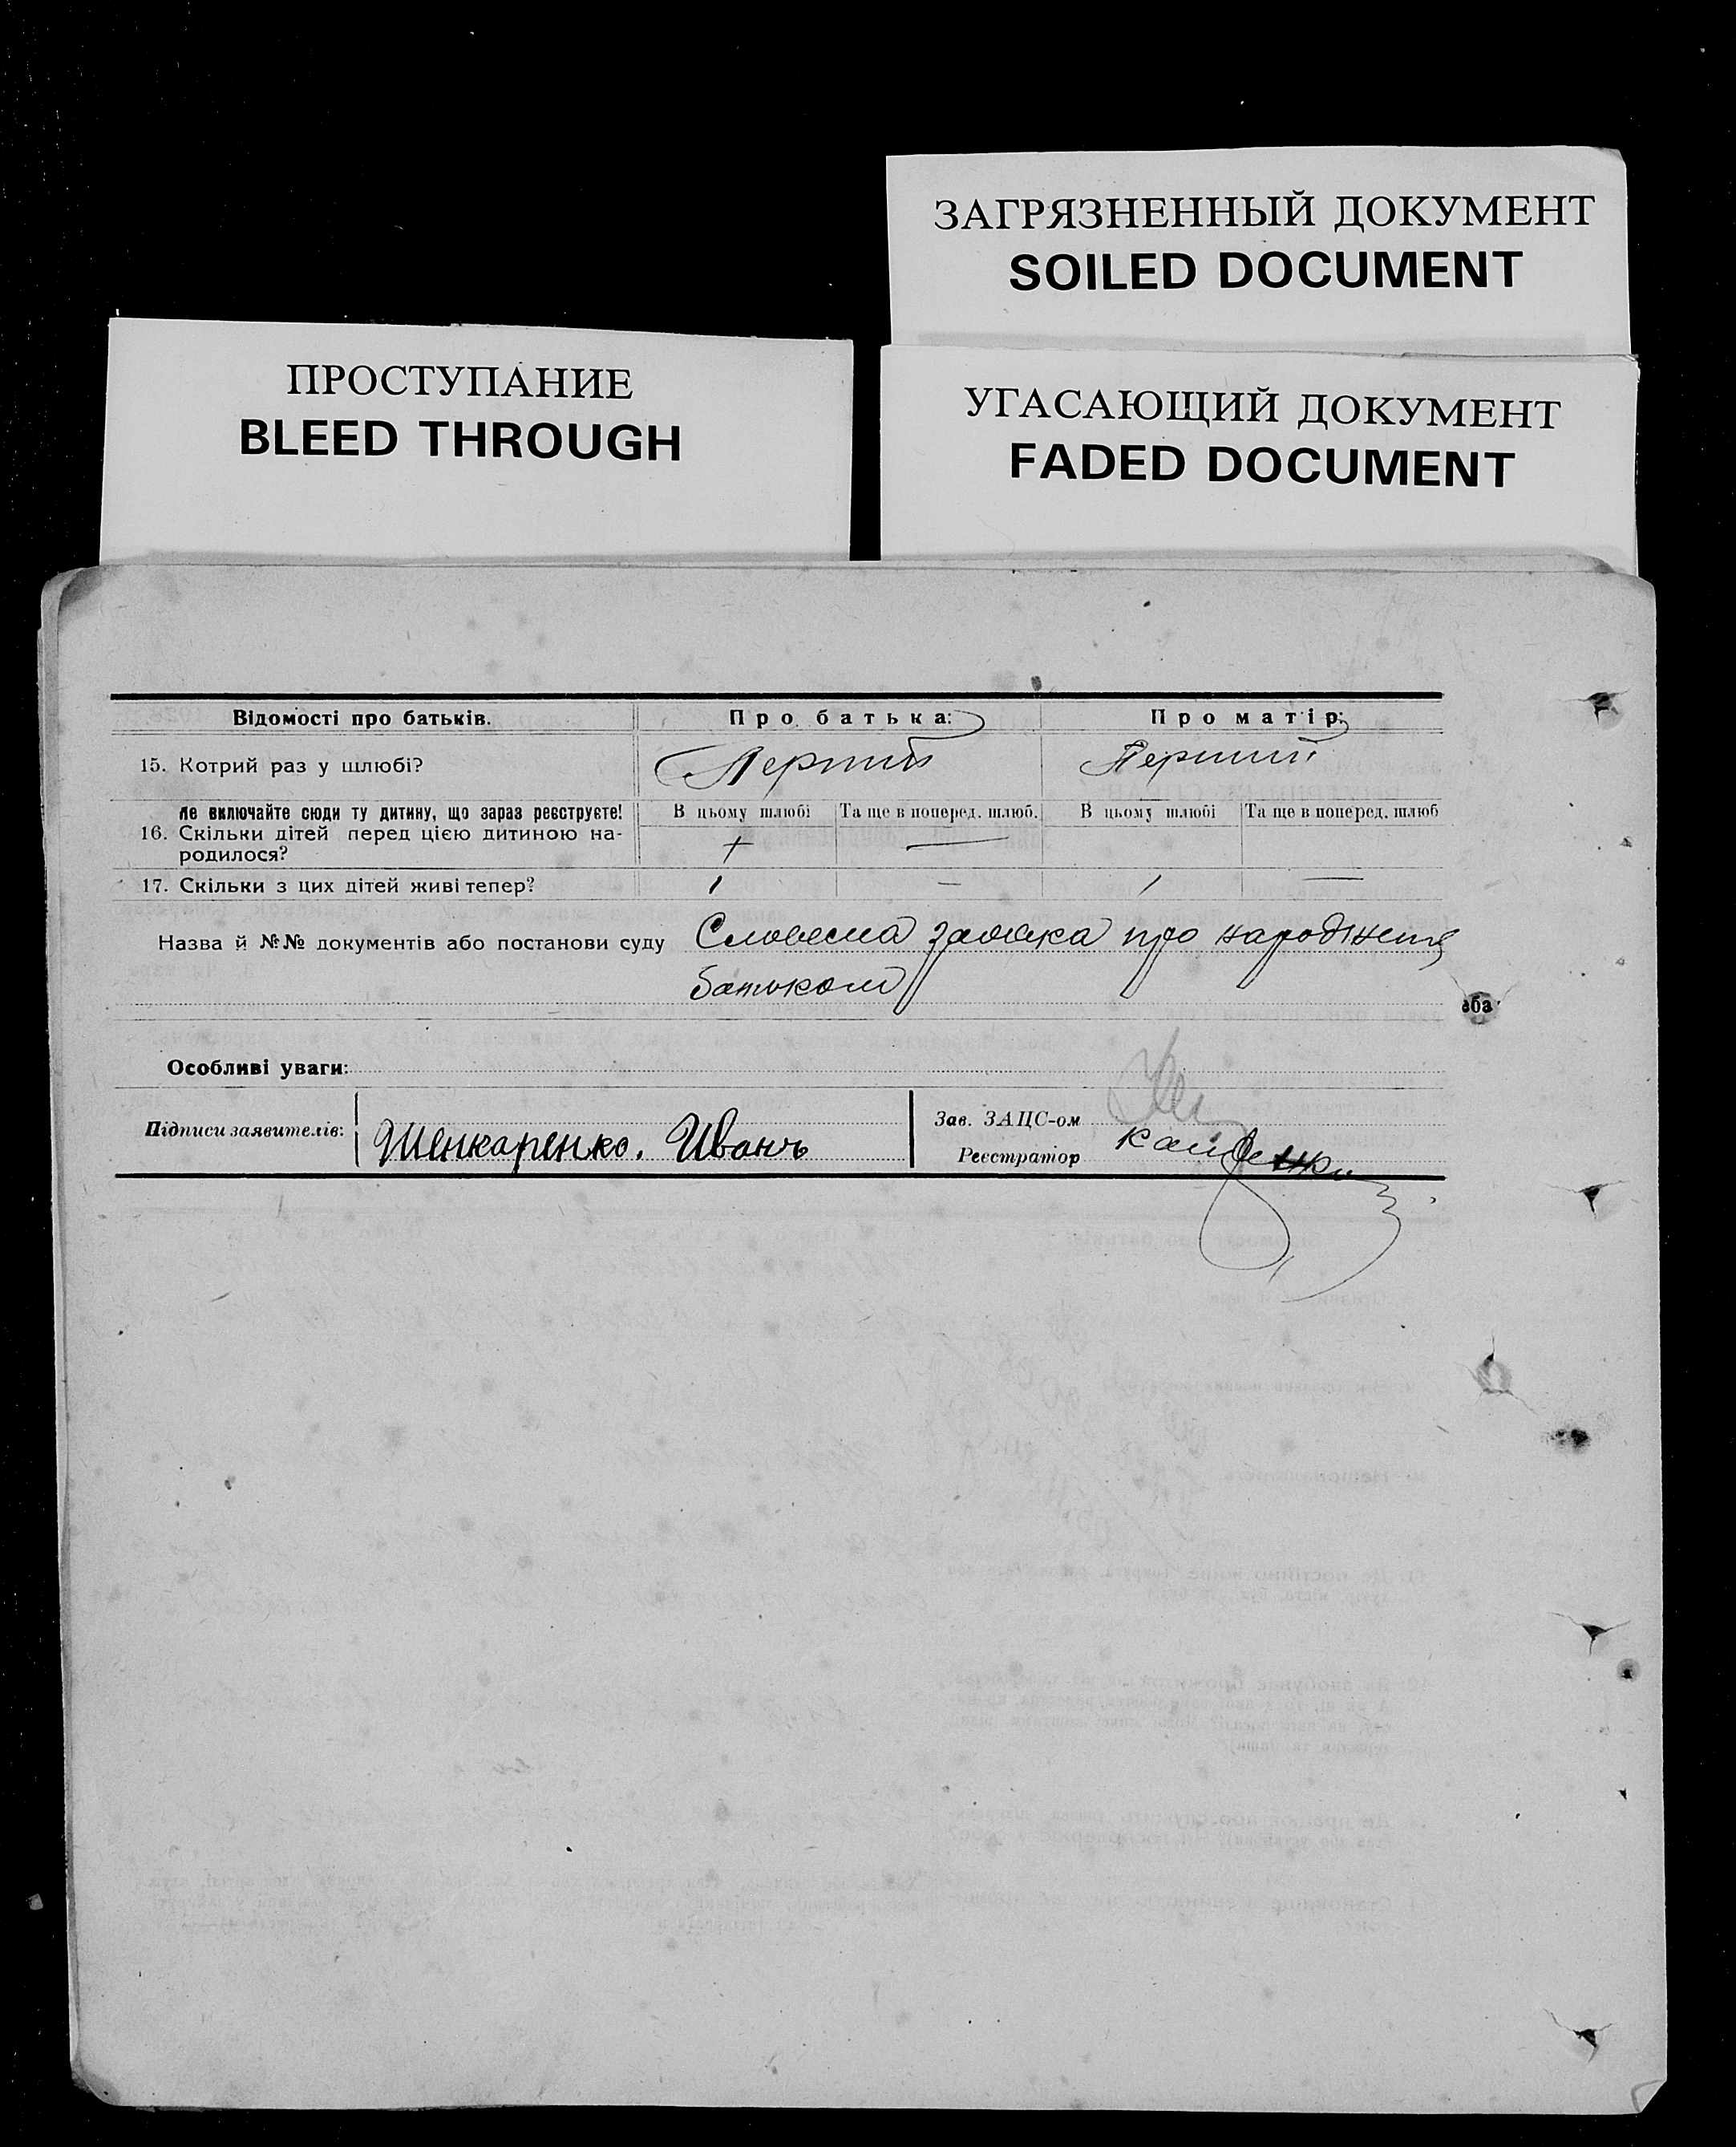 ЗАГРЯЗНЕННЫЙ ДОКУМЕНТ
SOILED DOCUMENT
ПРОСТУПАНИЕ
BLEED THROUGH
УГАСАЮЩИЙ ДОКУМЕНТ
FADED DOCUMENT
Відомості про батьків. Про батька: Про матір:
15. Котрий раз у шлюбі? Перший Перший
Не включайте сюди ту дитину, що зараз реєструєте! В цьому шлюбі Та ще в поперед. шлюб. В цьому шлюбі Та ще в поперед. шлюб
16. Скільки дітей перед цією дитиною на-
родилося? + —
17. Скільки з цих дітей живі тепер? / — / —
Назва й №№ документів або постанови суду Словесна заявка про народження
батьком
еба
Особливі уваги:
Підписи заявителів: Шенкаренко. Иванъ
Зав. ЗАЦС-ом
Реєстратор